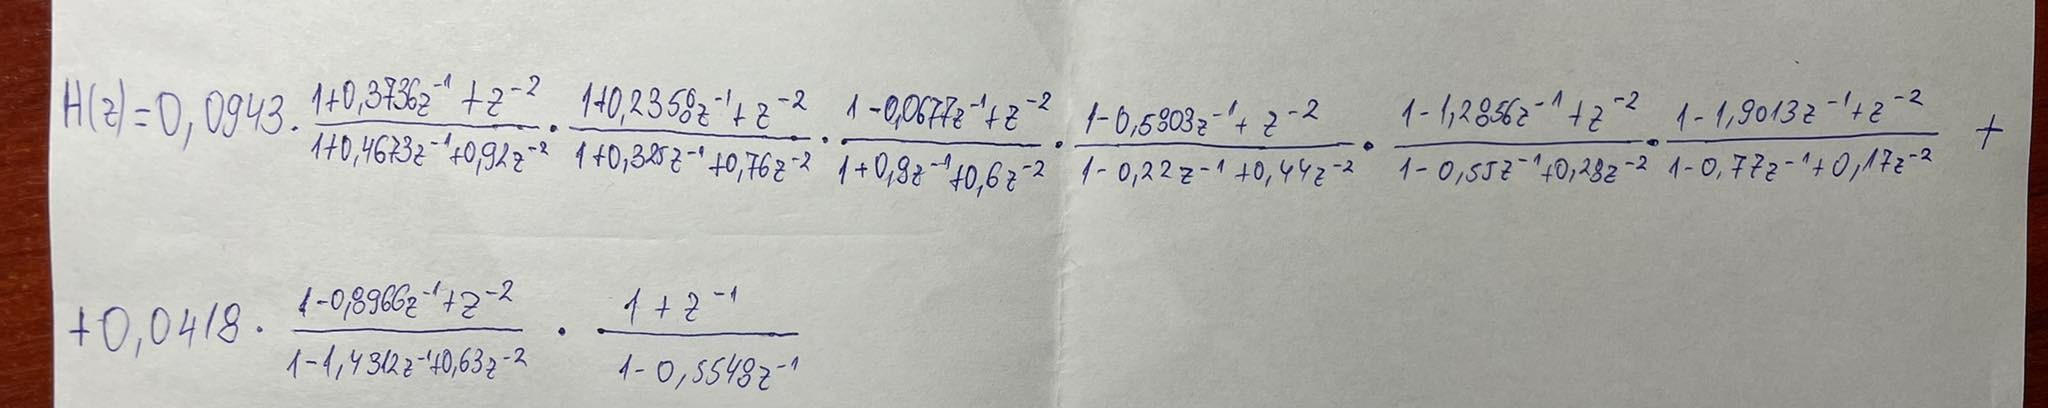 H(z)=0,0943·(1+0,3736z⁻¹+z⁻²)/(1+0,4673z⁻¹+0,92z⁻²)·(1+0,2358z⁻¹+z⁻²)/(1+0,325z⁻¹+0,76z⁻²)·(1-0,0677z⁻¹+z⁻²)/(1+0,9z⁻¹+0,6z⁻²)·(1-0,5903z⁻¹+z⁻²)/(1-0,22z⁻¹+0,44z⁻²)·(1-1,2856z⁻¹+z⁻²)/(1-0,55z⁻¹+0,28z⁻²)·(1-1,9013z⁻¹+z⁻²)/(1-0,77z⁻¹+0,17z⁻²) +
+0,0418·(1-0,8966z⁻¹+z⁻²)/(1-1,4312z⁻¹+0,63z⁻²)·(1+z⁻¹)/(1-0,5548z⁻¹)